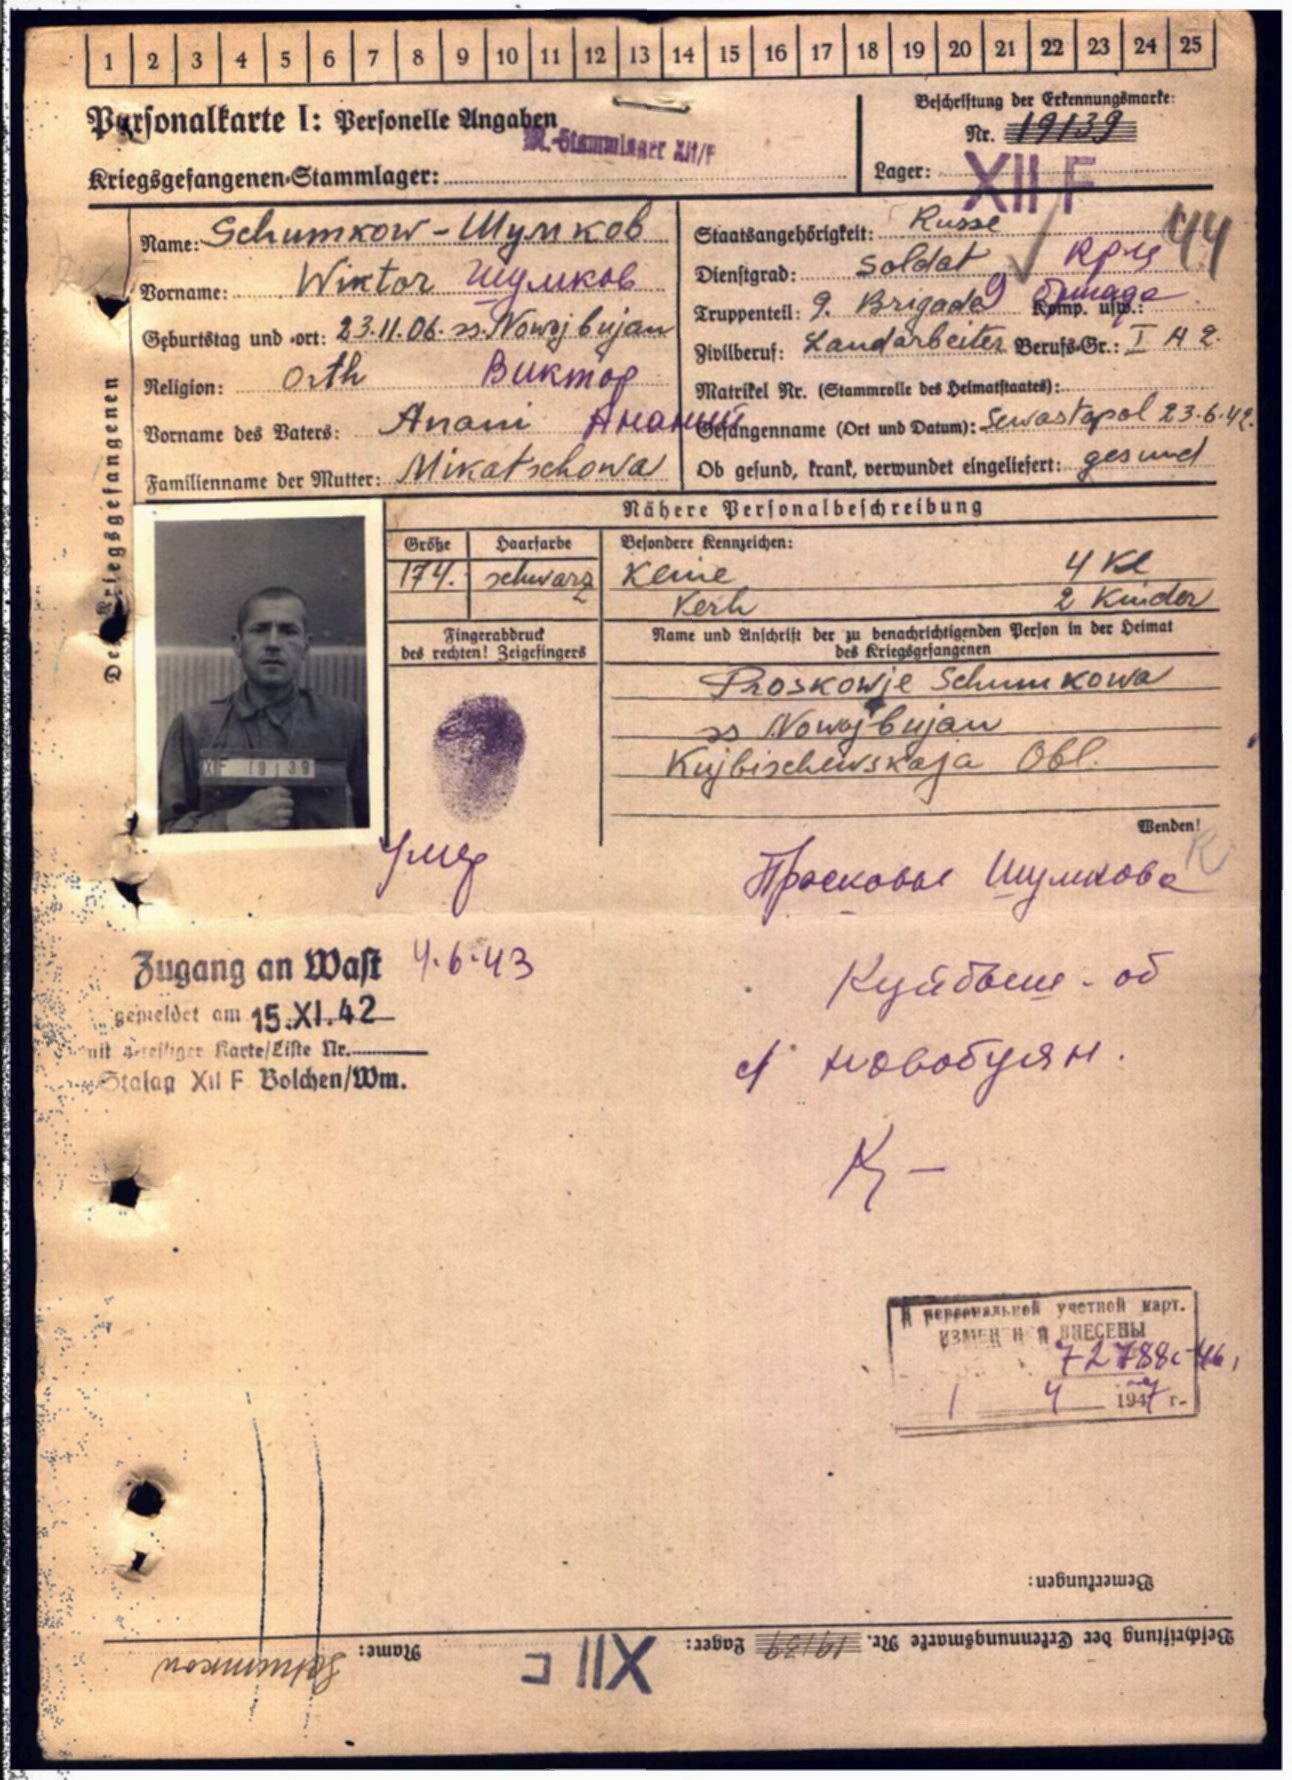 1 2 3 4 5 6 7 8 9 10 11 12 13 14 15 16 17 18 19 20 21 22 23 24 25
Personalkarte I: Personelle Angaben
M.-Stammlager XII/F
Kriegsgefangenen-Stammlager:
Beschriftung der Erkennungsmarke:
Nr. 19139
Lager: XII F
Des Kriegsgefangenen
Name: Schumkow - Шумков
Vorname: Wiktor Шумков
Geburtstag und -ort: 23.11.06. ss. Nowoj bujan
Religion: Orth Виктор
Vorname des Vaters: Anani Ананий
Familienname der Mutter: Mikatschowa
Staatsangehörigkeit: Russe
44
Dienstgrad: Soldat Кр-ц
Truppenteil: 9. Brigade 9 бригада Komp. usw.:
Zivilberuf: Landarbeiter Berufs-Gr.: I H 2.
Matrikel Nr. (Stammrolle des Heimatstaates):
Gefangennahme (Ort und Datum): Sewastopol 23.6.42.
Ob gesund, krank, verwundet eingeliefert: gesund
Nähere Personalbeschreibung
Größe Haarfarbe Besondere Kennzeichen:
174. schwarz Keine 4 Kl
Verh 2 Kinder
Fingerabdruck
des rechten! Zeigefingers
Name und Anschrift der zu benachrichtigenden Person in der Heimat
des Kriegsgefangenen
Proskowje Schumkowa
ss Nowoj bujan
Kujbischewskaja Obl.
XIIF 19139
Wenden!
Умер
4.6.43
Просковье Шумкова
Куйбыше - об
с/ Новобуян.
К -
Zugang an Wast
gemeldet am 15.XI.42
mit Karte/Liste Nr.
Stalag XII F Bolchen/Wm.
В персональной учетной карт.
ИЗМЕНЕНИЯ ВНЕСЕНЫ
72788с-46
1 4 1947 г.
Bemerkungen:
Beschriftung der Erkennungsmarke Nr. 19139 Lager: XII C Name: Schumkow